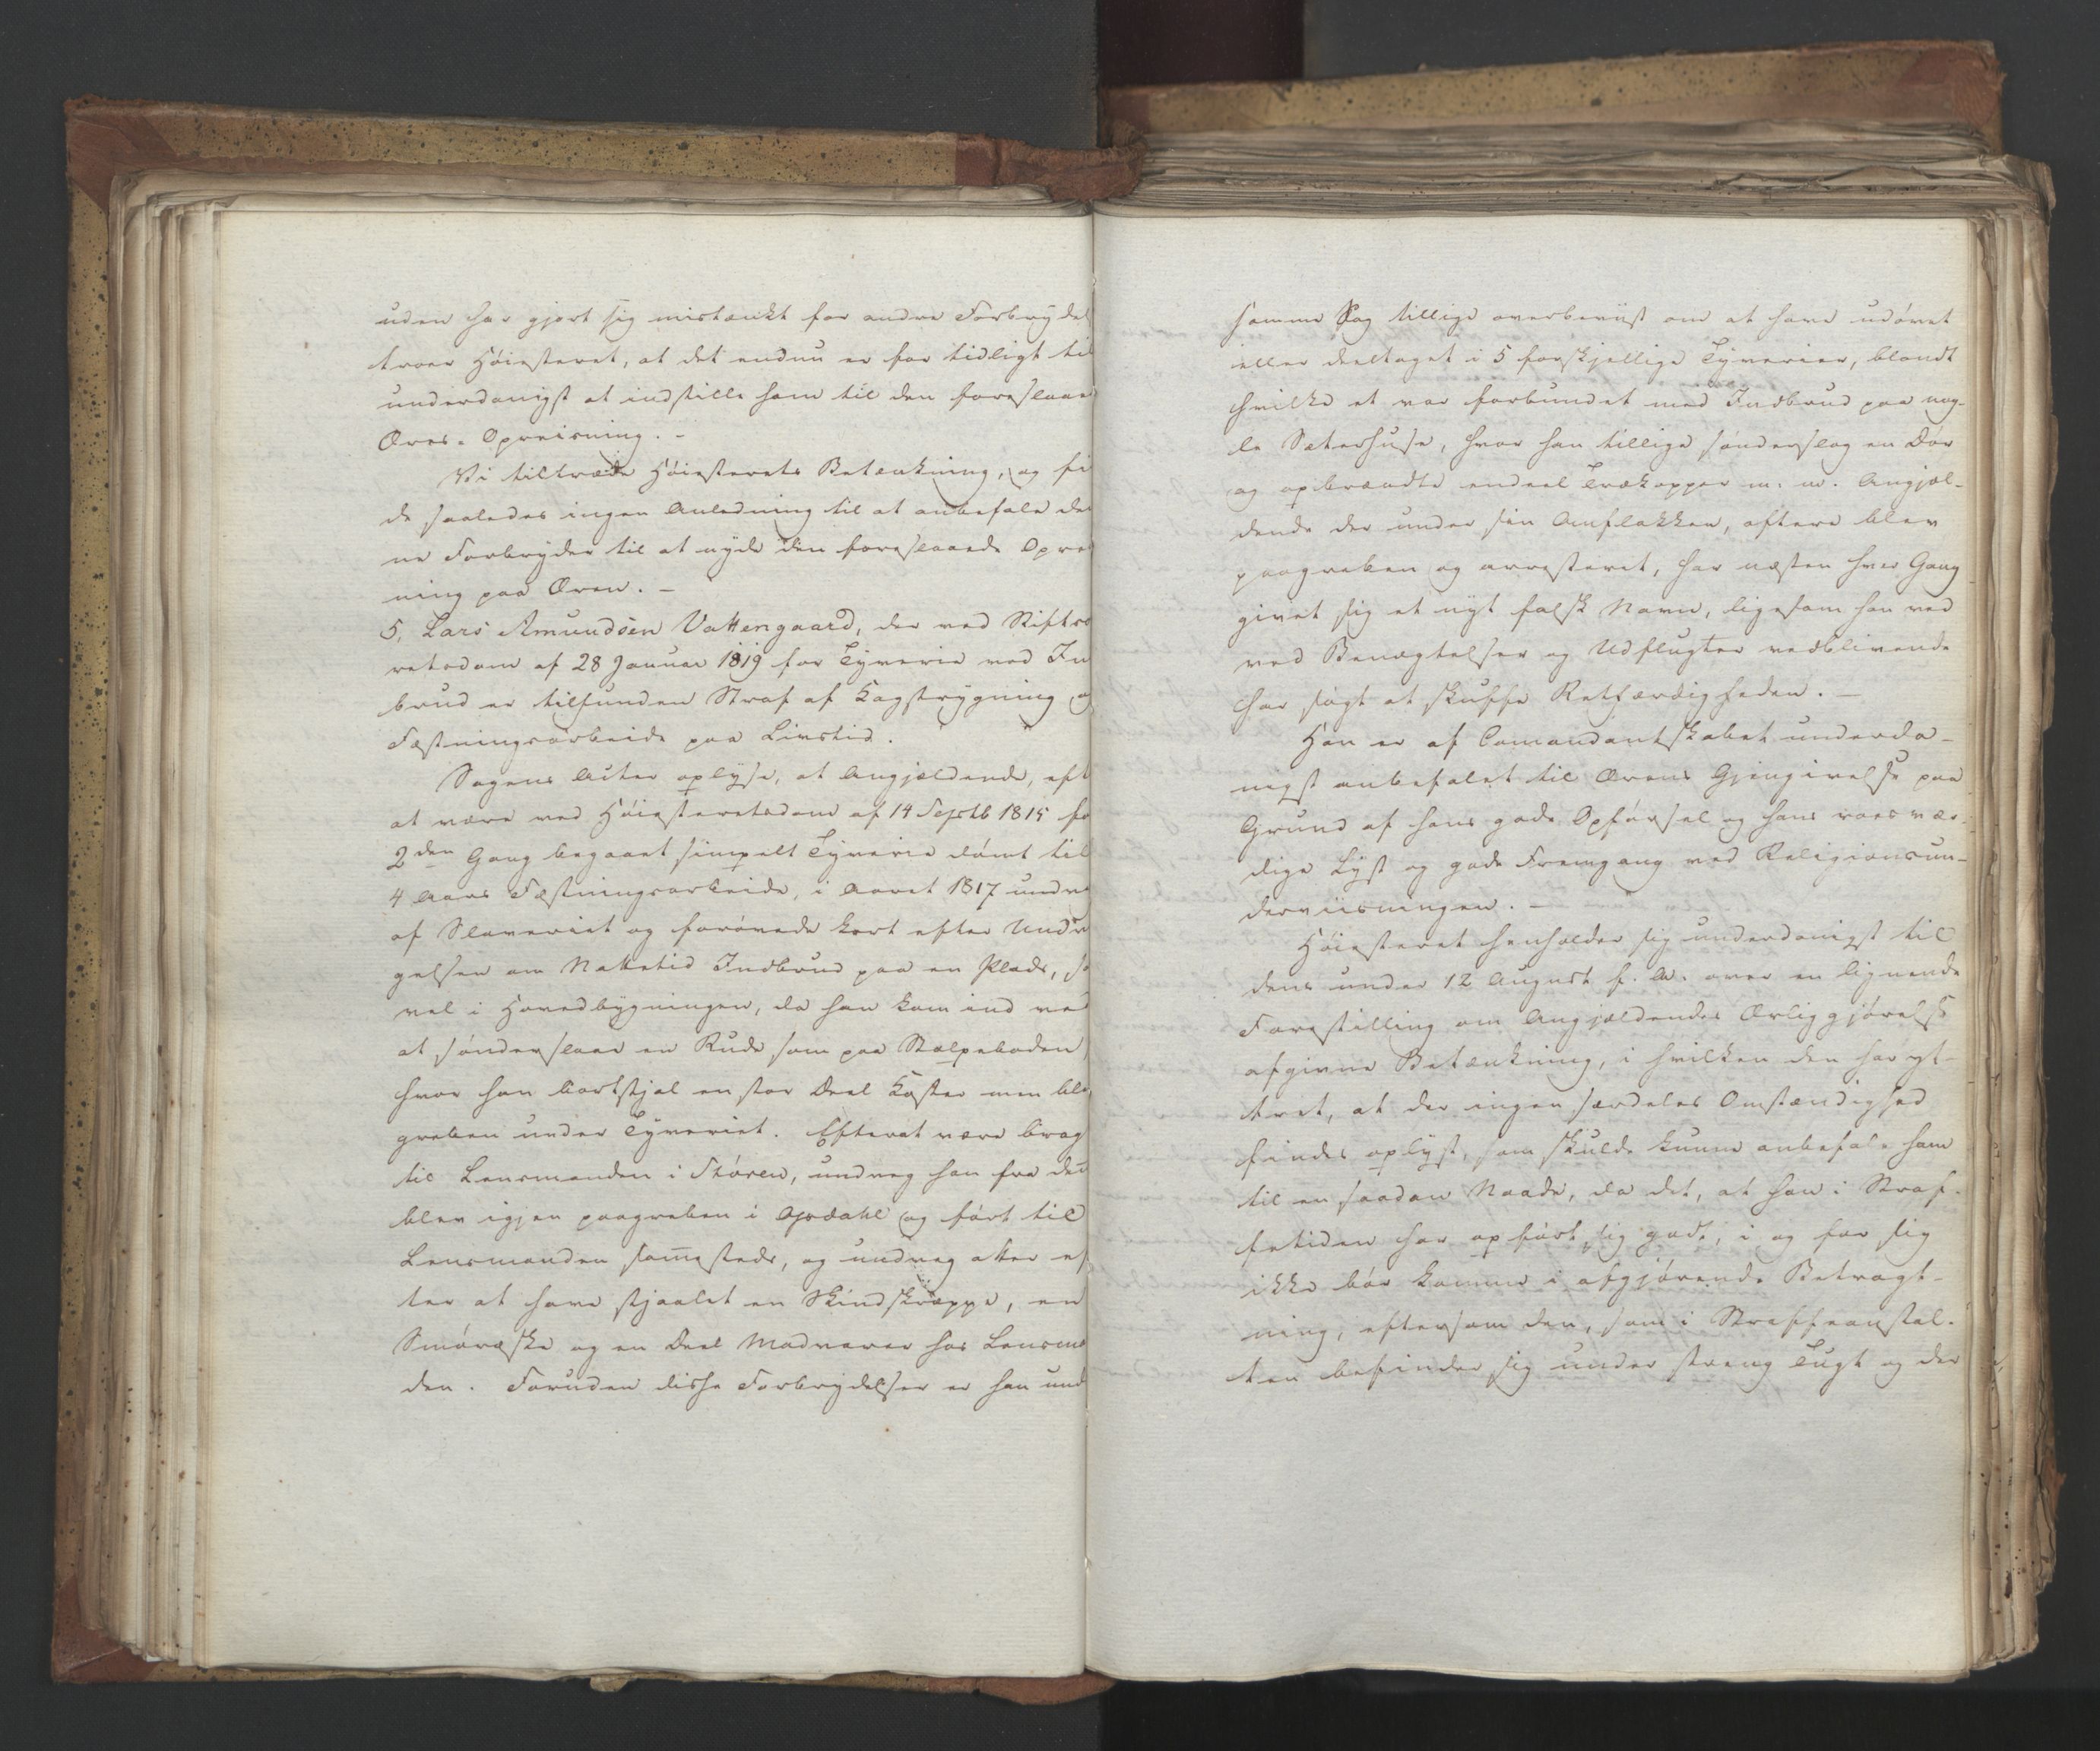 uden har gjort sig mistænkt for andre Forbrydel
troer Høiesteret, at det endnu er for tidligt til
underdanigst at indstille ham til den foreslaae
Æres-Opreisning. -
Vi tiltræde Høiesterets Betænkning, og fi
de saaledes ingen Anledning til at anbefale den
ne Forbryder til at nyde den foreslaaede Oprei
ning paa Æren. -
5, Lars Amundsen Vattengaard, der ved Stiftso
retsdom af 28 Januar 1819 for Tyverie ved In
brud er tilfunden Straf af Kagstrygning og
Fæstningsarbeide paa Livstid.
Sagens Acter oplyse, at Angjældende, eft
at være ved Høiesteretsdom af 14 Septb 1815 fo
2den Gang begaaet simpelt Tyverie dømt til
4 Aars Fæstningsarbeide, i Aaret 1817 undve
af Slaveriet og forøvede kort efter Undvi
gelsen om Nattetid Indbrud paa en Plads, so
vel i Hovedbygningen, da han kom ind ved
at sønderslaae en Rude som paa Stolpeboden
hvor han bortstjal en stor Deel Koster men ble
greben under Tyveriet. Efterat være brag
til Lensmanden i Støren, undveg han fra den
blev igjen paagreben i Opdahl og ført til
Lensmanden sam̅esteds, og undveg atter ef
ter at have stjaalet en Skindskræppe, en
Smøræske og en Deel Madvarer hos Lensma
den. Foruden disse Forbrydelser er han und
samme Sag tillige overbeviist om at have udøvet
eller deeltaget i 5 forskjellige Tyverier, blandt
hvilke et var forbundet med Indbrud paa nog-
le Sæterhuse, hvor han tillige sønderslog en Dør
og opbrændte endeel Trækopper m: v. Angjæl-
dende der under sin Omflakken, oftere blev
paagreben og arresteret, har næsten hver Gang
givet sig et nyt falsk Navn, ligesom han ved
ved Benægtelser og Udflugter vedblivende
har søgt at skuffe Retfærdigheden. -
Han er af Comandantskabet underda-
nigst anbefalet til Ærens Gjengivelse paa
Grund af hans gode Opførsel og hans roesvær-
dige Lyst og gode Fremgang ved Religionsun-
derviisningen. -
Høiesteret henholder sig underdanigst til
dens under 12 August f. A. over en lignende
Forestilling om Angjældendes Ærliggjørelse
afgivne Betænkning, i hvilken den har yt-
tret, at der ingen særdeles Omstændighed
findes oplyst, som skulde kunne anbefale ham
til en saadan Naade, da det, at han i Straf-
fetiden har opført sig godt, i og for sig
ikke bør komme i afgjørende Betragt-
ning, eftersom den, som i Straffeanstal-
ten befinder sig under streng Tugt og der